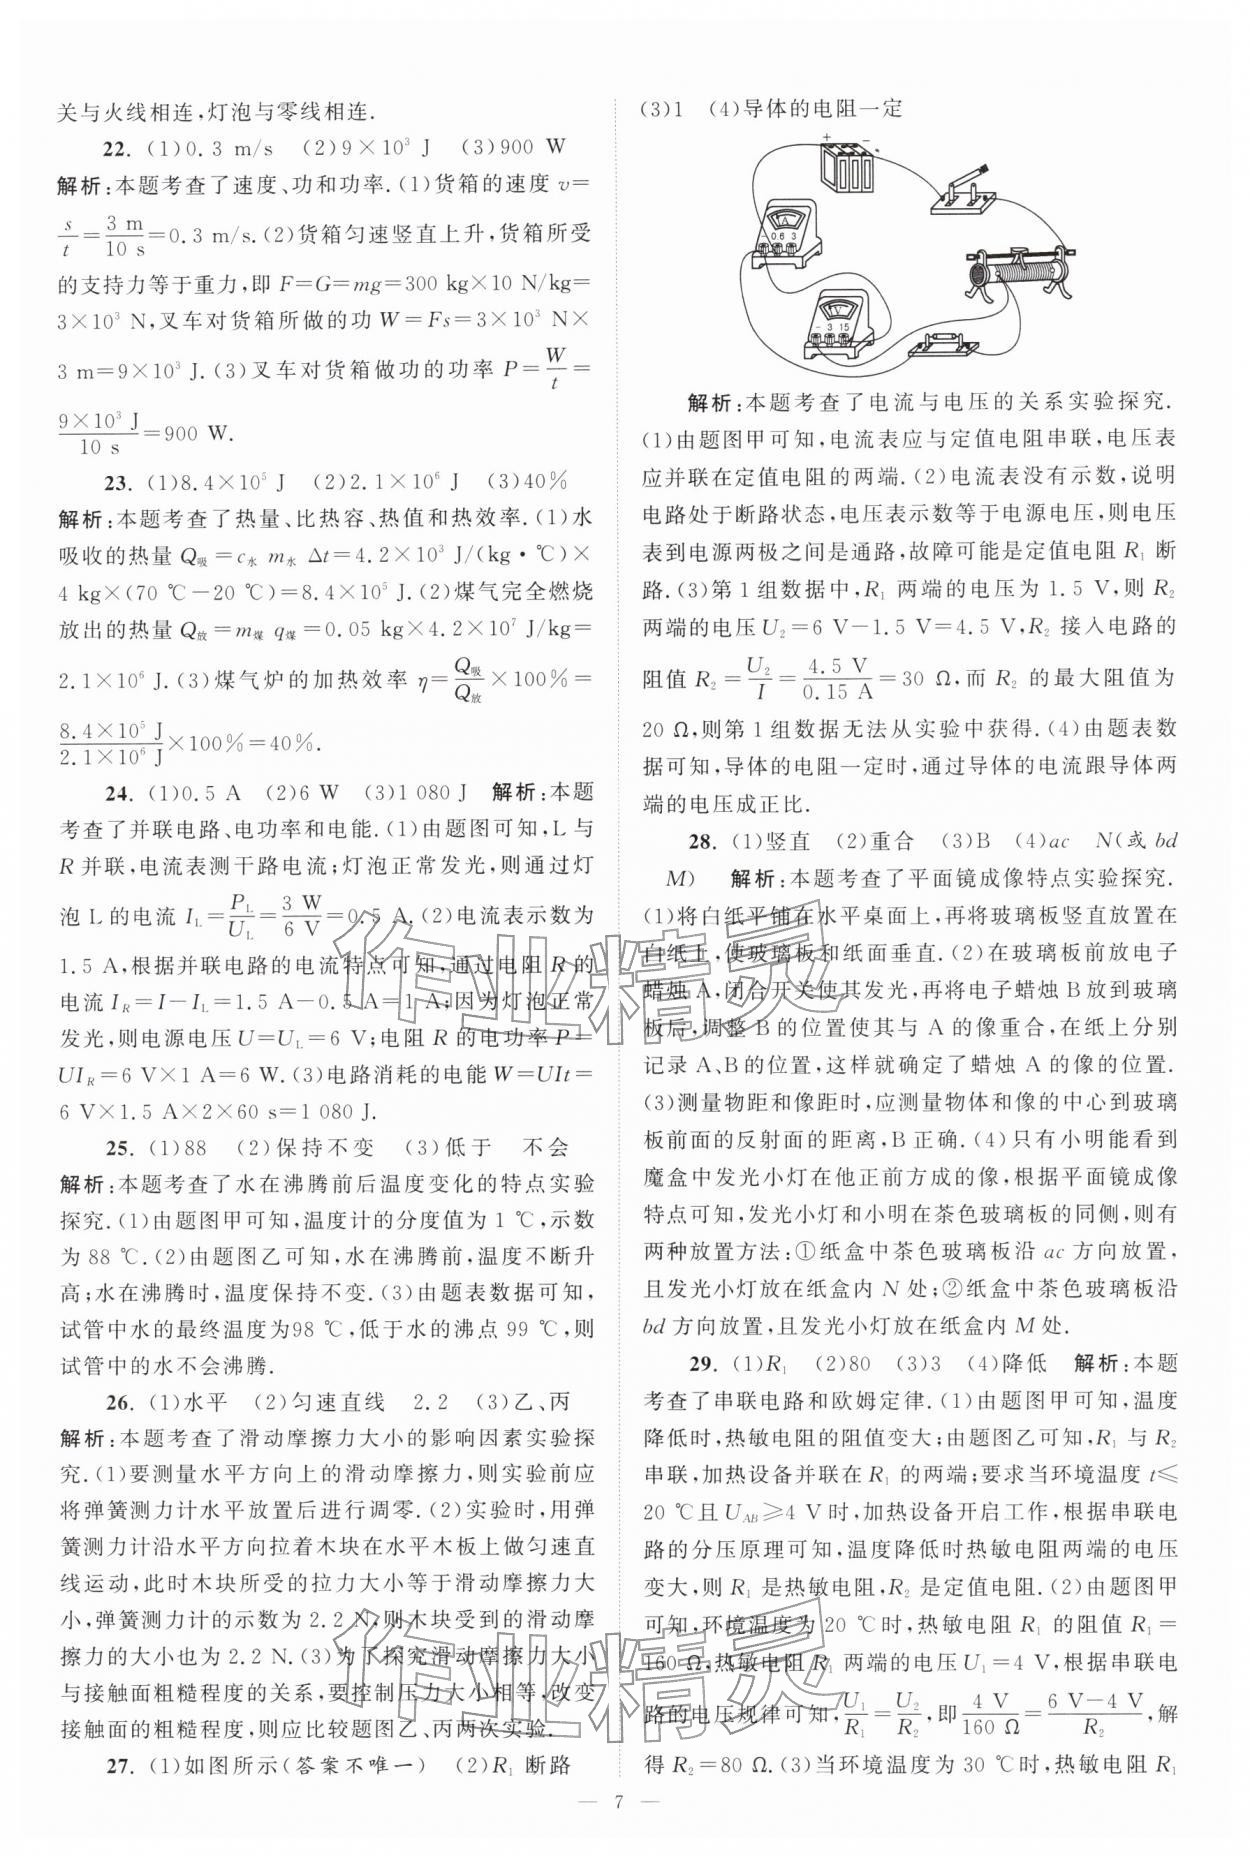 关与火线相连,灯泡与零线相连.
22. (1)0.3 m/s (2)9×10³ J (3)900 W
解析:本题考查了速度、功和功率.(1)货箱的速度 v=
s/t=3 m/10 s=0.3 m/s.(2)货箱匀速竖直上升,货箱所受
的支持力等于重力,即 F=G=mg=300 kg×10 N/kg=
3×10³ N,叉车对货箱所做的功 W=Fs=3×10³ N×
3 m=9×10³ J.(3)叉车对货箱做功的功率 P=W/t=
9×10³ J/10 s=900 W.
23. (1)8.4×10⁵ J (2)2.1×10⁶ J (3)40%
解析:本题考查了热量、比热容、热值和热效率.(1)水
吸收的热量 Q吸=c水 m水 Δt=4.2×10³ J/(kg·℃)×
4 kg×(70 ℃-20 ℃)=8.4×10⁵ J.(2)煤气完全燃烧
放出的热量 Q放=m煤 q煤=0.05 kg×4.2×10⁷ J/kg=
2.1×10⁶ J.(3)煤气炉的加热效率 η=Q吸/Q放×100%=
8.4×10⁵ J/2.1×10⁶ J×100%=40%.
24. (1)0.5 A (2)6 W (3)1 080 J 解析:本题
考查了并联电路、电功率和电能.(1)由题图可知,L 与
R 并联,电流表测干路电流;灯泡正常发光,则通过灯
泡 L 的电流 I_L=P_L/U_L=3 W/6 V=0.5 A.(2)电流表示数为
1.5 A,根据并联电路的电流特点可知,通过电阻 R 的
电流 I_R=I-I_L=1.5 A-0.5 A=1 A;因为灯泡正常
发光,则电源电压 U=U_L=6 V;电阻 R 的电功率 P=
UI_R=6 V×1 A=6 W.(3)电路消耗的电能 W=UIt=
6 V×1.5 A×2×60 s=1 080 J.
25. (1)88 (2)保持不变 (3)低于 不会
解析:本题考查了水在沸腾前后温度变化的特点实验
探究.(1)由题图甲可知,温度计的分度值为 1 ℃,示数
为 88 ℃.(2)由题图乙可知,水在沸腾前,温度不断升
高;水在沸腾时,温度保持不变.(3)由题表数据可知,
试管中水的最终温度为98 ℃,低于水的沸点 99 ℃,则
试管中的水不会沸腾.
26. (1)水平 (2)匀速直线 2.2 (3)乙、丙
解析:本题考查了滑动摩擦力大小的影响因素实验探
究.(1)要测量水平方向上的滑动摩擦力,则实验前应
将弹簧测力计水平放置后进行调零.(2)实验时,用弹
簧测力计沿水平方向拉着木块在水平木板上做匀速直
线运动,此时木块所受的拉力大小等于滑动摩擦力大
小,弹簧测力计的示数为 2.2 N,则木块受到的滑动摩
擦力的大小也为 2.2 N.(3)为了探究滑动摩擦力大小
与接触面粗糙程度的关系,要控制压力大小相等,改变
接触面的粗糙程度,则应比较题图乙、丙两次实验.
27. (1)如图所示(答案不唯一) (2)R₁ 断路
(3)1 (4)导体的电阻一定
+ -
A
- 0.6 3
V
- 3 15
解析:本题考查了电流与电压的关系实验探究.
(1)由题图甲可知,电流表应与定值电阻串联,电压表
应并联在定值电阻的两端.(2)电流表没有示数,说明
电路处于断路状态,电压表示数等于电源电压,则电压
表到电源两极之间是通路,故障可能是定值电阻 R₁ 断
路.(3)第 1 组数据中,R₁ 两端的电压为 1.5 V,则 R₂
两端的电压 U₂=6 V-1.5 V=4.5 V,R₂ 接入电路的
阻值 R₂=U₂/I=4.5 V/0.15 A=30 Ω,而 R₂ 的最大阻值为
20 Ω,则第 1 组数据无法从实验中获得.(4)由题表数
据可知,导体的电阻一定时,通过导体的电流跟导体两
端的电压成正比.
28. (1)竖直 (2)重合 (3)B (4)ac N(或 bd
M) 解析:本题考查了平面镜成像特点实验探究.
(1)将白纸平铺在水平桌面上,再将玻璃板竖直放置在
白纸上,使玻璃板和纸面垂直.(2)在玻璃板前放电子
蜡烛 A,闭合开关使其发光,再将电子蜡烛 B 放到玻璃
板后,调整 B 的位置使其与 A 的像重合,在纸上分别
记录 A、B 的位置,这样就确定了蜡烛 A 的像的位置.
(3)测量物距和像距时,应测量物体和像的中心到玻璃
板前面的反射面的距离,B 正确.(4)只有小明能看到
魔盒中发光小灯在他正前方成的像,根据平面镜成像
特点可知,发光小灯和小明在茶色玻璃板的同侧,则有
两种放置方法:①纸盒中茶色玻璃板沿 ac 方向放置,
且发光小灯放在纸盒内 N 处;②纸盒中茶色玻璃板沿
bd 方向放置,且发光小灯放在纸盒内 M 处.
29. (1)R₁ (2)80 (3)3 (4)降低 解析:本题
考查了串联电路和欧姆定律.(1)由题图甲可知,温度
降低时,热敏电阻的阻值变大;由题图乙可知,R₁ 与 R₂
串联,加热设备并联在 R₁ 的两端;要求当环境温度 t≤
20 ℃且 U_AB≥4 V 时,加热设备开启工作,根据串联电
路的分压原理可知,温度降低时热敏电阻两端的电压
变大,则 R₁ 是热敏电阻,R₂ 是定值电阻.(2)由题图甲
可知,环境温度为 20 ℃时,热敏电阻 R₁ 的阻值 R₁=
160 Ω,热敏电阻 R₁ 两端的电压 U₁=4 V,根据串联电
路的电压规律可知,U₁/R₁=U₂/R₂,即4 V/160 Ω=6 V-4 V/R₂,解
得 R₂=80 Ω.(3)当环境温度为 30 ℃时,热敏电阻 R₁
作业精灵
作业精灵
— 7 —